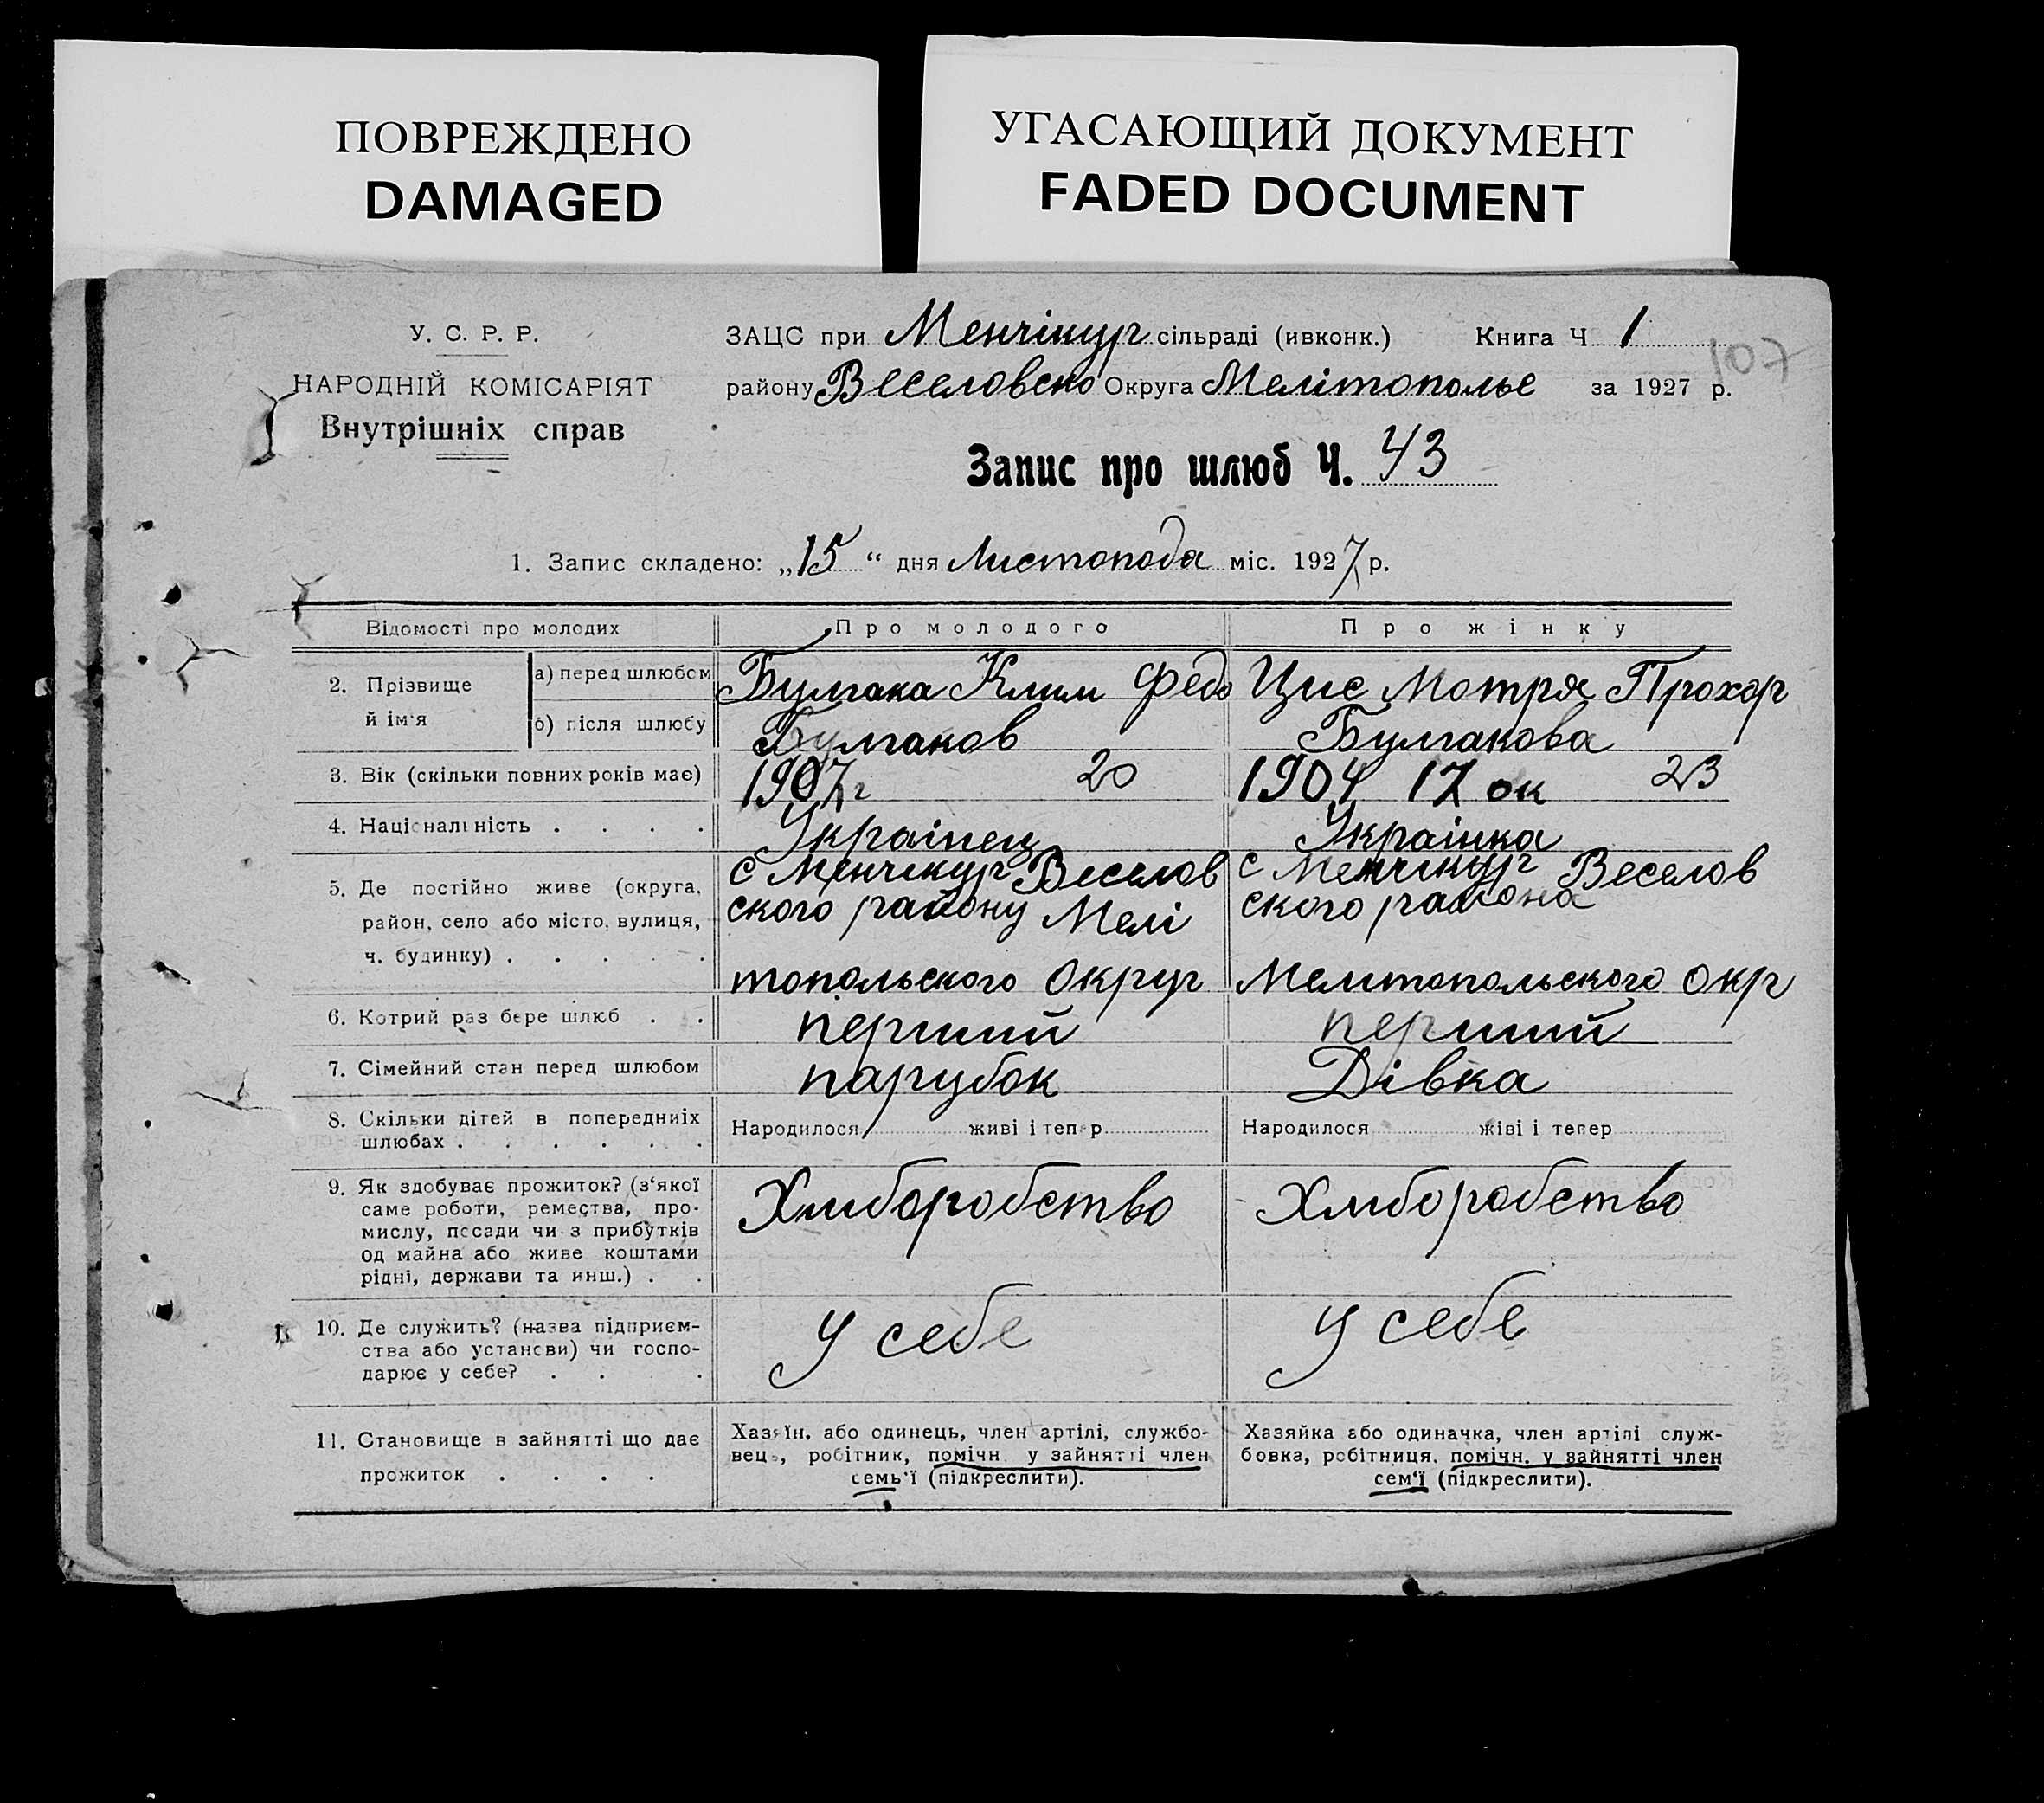 ПОВРЕЖДЕНО
DAMAGED
УГАСАЮЩИЙ ДОКУМЕНТ
FADED DOCUMENT
У. С. Р. Р.
НАРОДНІЙ КОМІСАРІЯТ
Внутрішніх справ
ЗАЦС при Менчікур сільраді (ивконк.) Книга Ч 1
107
району Веселовско Округа Мелітополье за 1927 р.
Запис про шлюб Ч. 43
1. Запис складено: „15“ дня Листопода міс. 1927 р.
Відомості про молодих Про молодого Про жінку
2. Прізвище й ім'я
а) перед шлюбом Булгака Клим Федо Цис Мотря Прохор
б) після шлюбу Булгаков Булгакова
3. Вік (скільки повних років має) 1907 г 20 1904 17 ок 23
4. Національність . . . . Українец Українка
5. Де постійно живе (округа, район, село або місто, вулиця, ч. будинку) . . . . .
с Менчикур Веселов
ского району Мелі
топольского Округ
с Менчикур Веселов
ского района
Мелитопольского окр
6. Котрий раз бере шлюб . . перший перший
7. Сімейний стан перед шлюбом парубок Дівка
8. Скільки дітей в попередниіх шлюбах . . . . . .
Народилося живі і тепер Народилося жіві і тепер
9. Як здобуває прожиток? (з'якої
саме роботи, ремества, про-
мислу, посади чи з прибутків
од майна або живе коштами
рідні, держави та инш.) . .
Хлиборобство Хлиборобство
10. Де служить? (назва підприєм-
ства або установи) чи госпо-
дарює у себе? . . .
У себе У себе
11. Становище в зайнятті що дає
прожиток . . . .
Хазяїн, або одинець, член артілі, службо-
вець, робітник, помічн. у зайнятті член
семь'ї (підкреслити).
Хазяйка або одиначка, член артілі служ-
бовка, робітниця, помічн. у зайнятті член
сем'ї (підкреслити).